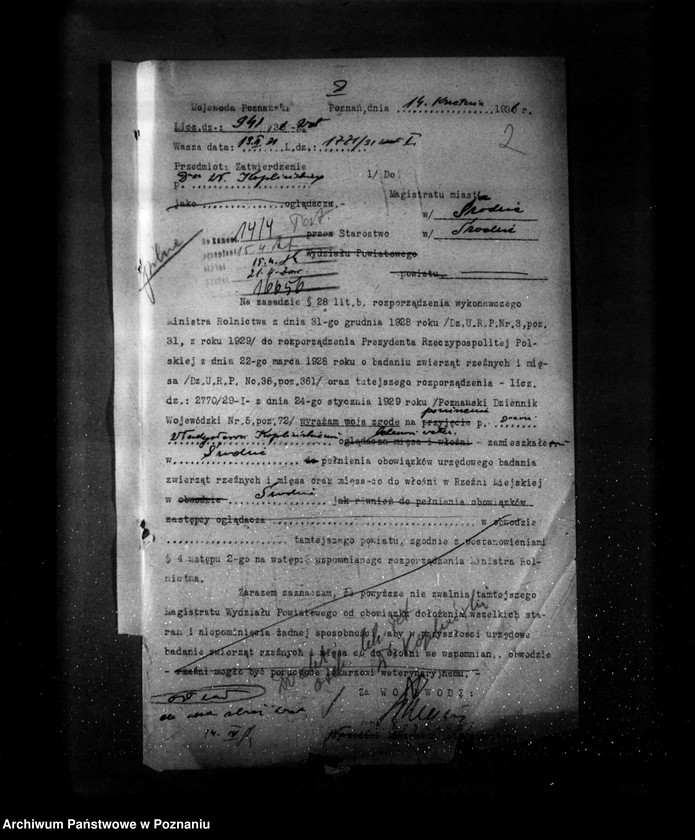 2
Wojewoda Poznański Poznań, dnia 14. Kwietnia 1936 r.
Licz.dz.: 941/36-Wet
Wasza data: L.dz.: 1781/31
Przedmiot: Zatwierdzenie
p. Dra W. Koplińskiego 1/ Do
Magistratu miasta
jako oglądacza.-
w/ Środzie
14/4
przez Starostwo w/ Środzie
Pilne
15.4
Wydziału Powiatowego
15.4.
21.4
powiatu
16656
Na zasadzie § 28 lit.b, rozporządzenia wykonawczego
Ministra Rolnictwa z dnia 31-go grudnia 1928 roku /Dz.U.R.P.Nr.3,poz.
31, z roku 1929/ do rozporządzenia Prezydenta Rzeczypospolitej Pol-
skiej z dnia 22-go marca 1928 roku o badaniu zwierząt rzeźnych i mię-
sa /Dz.U.R.P. No.38,poz.361/ oraz tutejszego rozporządzenia - licz.
dz.: 2770/29-I- z dnia 24-go stycznia 1929 roku /Poznański Dziennik
Wojewódzki Nr.5,poz.72/ wyrażam moją zgodę na przyjęcie p.
Władysława Koplińskiemu oglądacza mięsa i włośni - zamieszkałe
w Środzie do pełnienia obowiązków urzędowego badania
zwierząt rzeźnych i mięsa oraz mięsa-co do włośni w Rzeźni Miejskiej
w obwodzie Środzie jak również do pełnienia obowiązków
zastępcy oglądacza w obwodzie
tamtejszego powiatu, zgodnie z postanowieniami
§ 4 ustępu 2-go na wstępie wspomnianego rozporządzenia Ministra Rol-
nictwa.
Zarazem zaznaczam, że powyższe nie zwalnia tamtejszego
Magistratu Wydziału Powiatowego od obowiązku dołożenia wszelkich sta-
rań i niepominięcia żadnej sposobności, aby w przyszłości urzędowe
badanie zwierząt rzeźnych i mięsa co do włośni we wspomnian. obwodzie
- rzeźni mogło być poruczone lekarzowi weterynaryjnemu. -
Za WOJEWODĘ:
14. IV
Archiwum Państwowe w Poznaniu